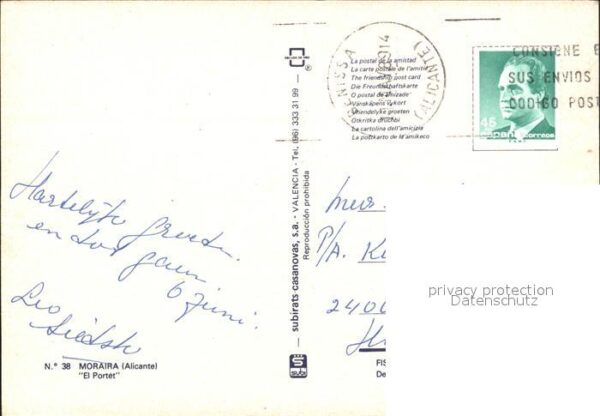 Hartelijke groeten
en tot gauw
6 Juni.
Leo
N.° 38 MORAIRA (Alicante)
"El Portet"
subirats casanovas, s.a. - VALENCIA - Tel. (96) 333 31 99
Reproducción prohibida
La postal de la amistad
La carte postale de l'amitié
The friendship post card
Die Freundschaftskarte
O postal de amizade
Vänskapens vykort
Vriendelijke groeten
Otkritka druchbi
La cartolina dell'amicizia
La postkarto de l'amikeco
BENISSA
(ALICANTE)
CONSIGNE E
SUS ENVIOS
CODIGO POST
España correos
FNMT
P/A.
2400
privacy protection
Datenschutz
FIS
De